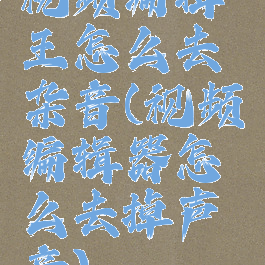 视频编辑
王怎么去
杂音(视频
编辑器怎
么去掉声
音)